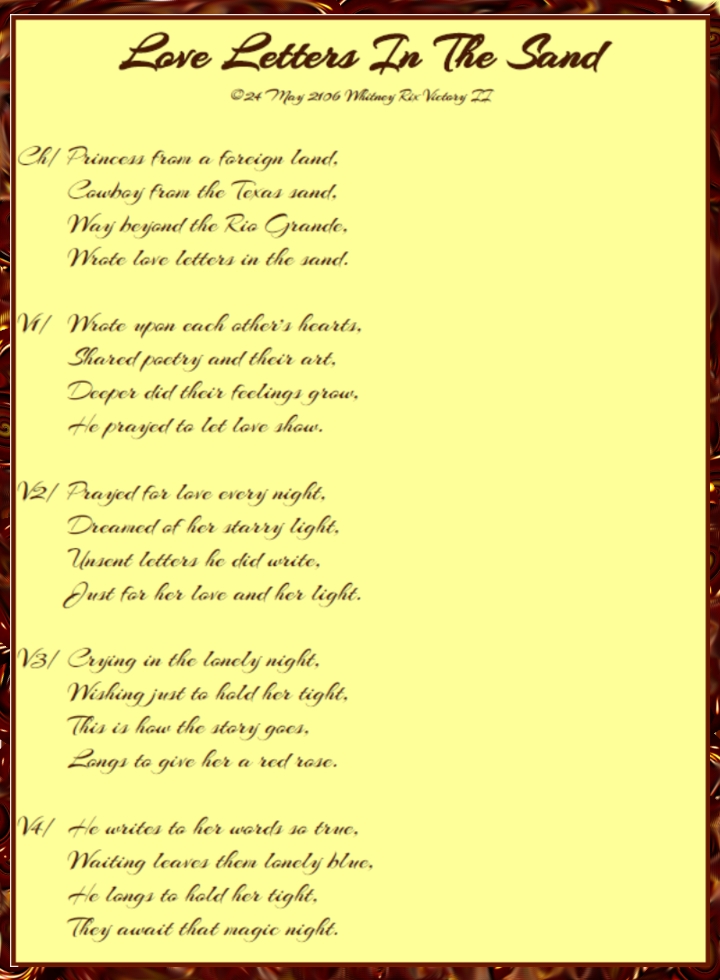 Love Letters In The Sand
©24 May 2106 Whitney Rix Victory II
Ch/ Princess from a foreign land,
Cowboy from the Texas sand,
Way beyond the Rio Grande,
Wrote love letters in the sand.
V1/ Wrote upon each other's hearts,
Shared poetry and their art,
Deeper did their feelings grow,
He prayed to let love show.
V2/ Prayed for love every night,
Dreamed of her starry light,
Unsent letters he did write,
Just for her love and her light.
V3/ Crying in the lonely night,
Wishing just to hold her tight,
This is how the story goes,
Longs to give her a red rose.
V4/ He writes to her words so true,
Waiting leaves them lonely blue,
He longs to hold her tight,
They await that magic night.